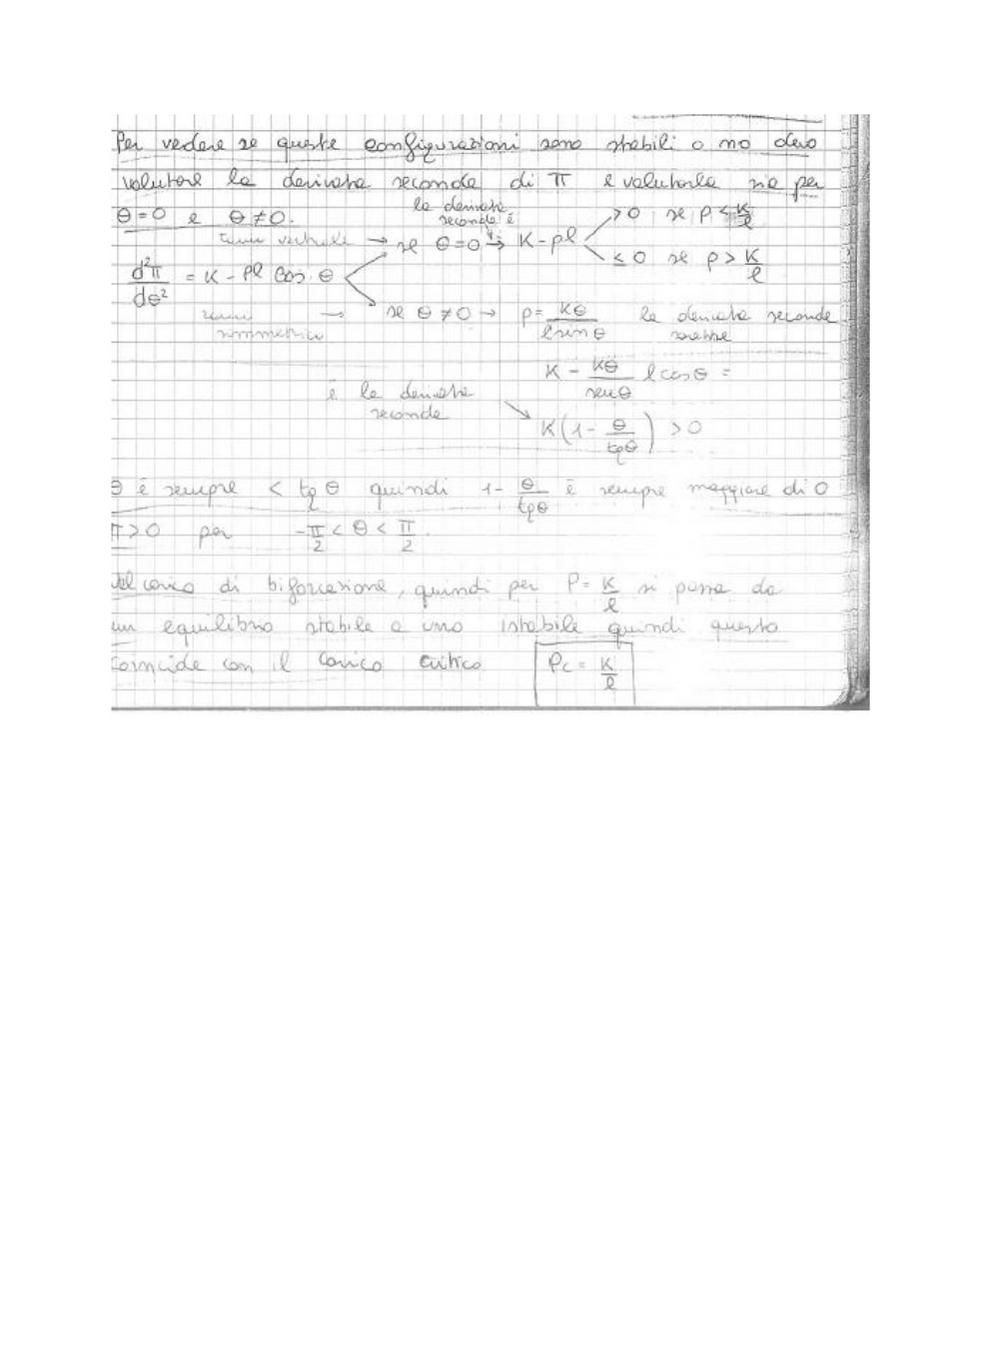 Per vedere se queste configurazioni sono stabili o no devo
valutare la derivata seconda di π e valutarla sia per
θ=0 e θ≠0.
la derivata seconda è
rami verticale → se θ=0 → K-Pl
>0 se P < K/l
≤0 se P > K/l
d²π/dθ² = K - Pl cos θ
rami simmetrici → se θ≠0 → P= Kθ/(l sin θ) la derivata seconda sarebbe
K - Kθ/senθ l cos θ =
è la derivata seconda
K(1 - θ/tgθ) >0
θ è sempre < tg θ quindi 1- θ/tgθ è sempre maggiore di 0
π>0 per -π/2 < θ < π/2.
Al carico di biforcazione, quindi per P= K/l si passa da
un equilibrio stabile a uno istabile quindi questo
coincide con il carico critico Pc = K/l